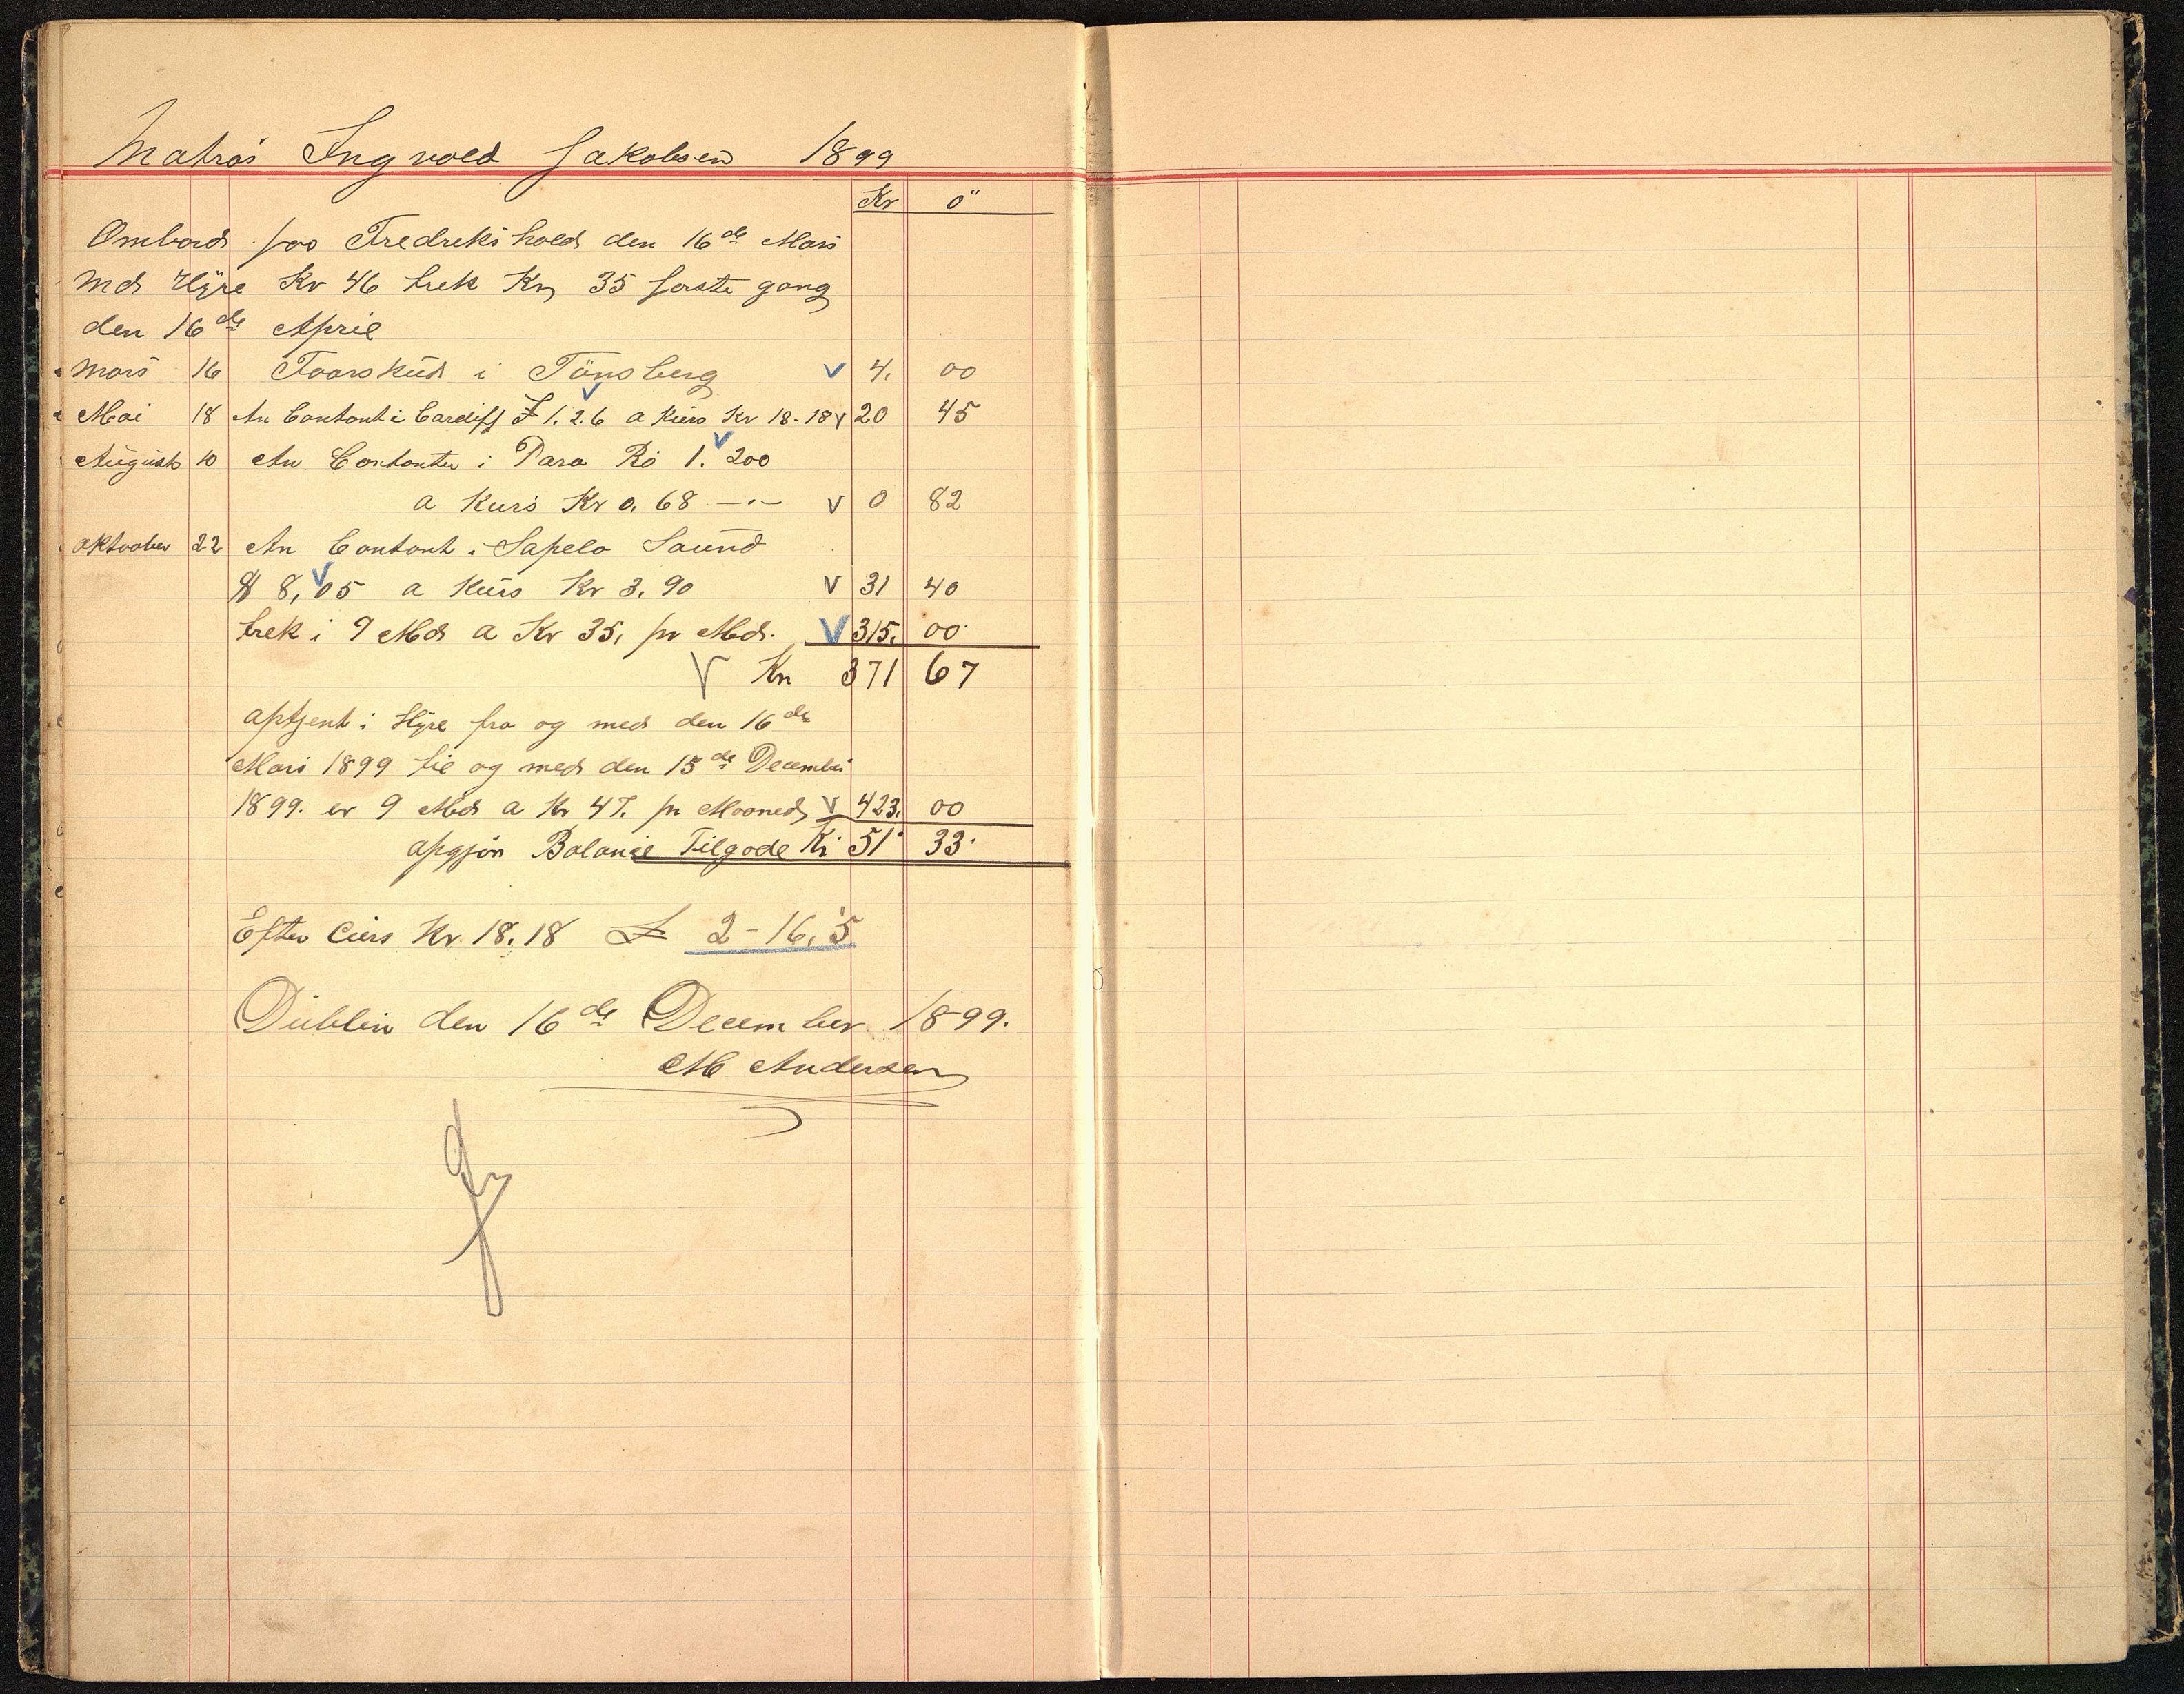 Matros Ingvald Jakobsen 1899
Kr ö
Ombord paa Fredrikshald den 16de Mars
Md Hÿre Kr 46 trek Kr 35 förste gang
den 16de April
Mars 16 Foorskud i Tönsberg V 4. 00
Mai 18 An Contant i Cardiff £ 1. 2. 6 a Kürs Kr 18-18 V 20 45
August 10 An Contanter i Para Rs 1. 200
a Kurs Kr 0. 68 —"— V 0 82
Oktoober 22 An Contant i Sapelo Sound
$ 8,05 a Kürs Kr 3. 90 V 31 40
trek i 9 Mds a Kr 35, pr Md. V 315. 00
V Kr 371 67
optjent i Hÿre fra og med den 16de
Mars 1899 til og med den 15de December
1899. er 9 Md a Kr 47. pr Mooned V 423. 00
opgjör Balance Tilgode Kr 51 33
Efter Curs Kr. 18.18 £ 2-16,5
Düblin den 16de December 1899.
M Andersen